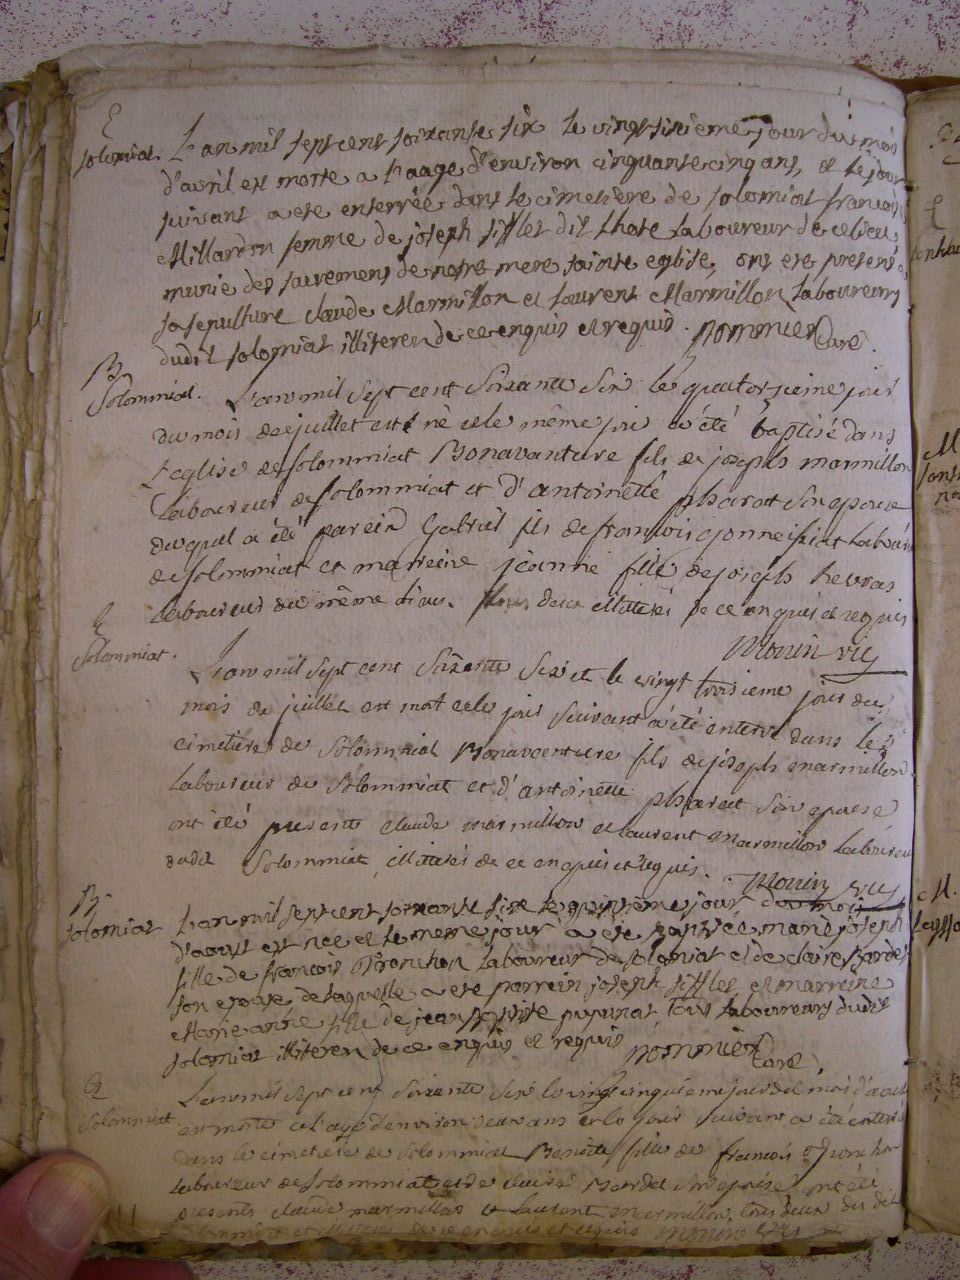 E
solomiat. L'an mil sept cent soixante six le vingt sixieme jour du mois
d'avril est morte a l'aage d'environ cinquante cinq ans, et le jour
suivant a ete enterrée dans le cimetière de solomiat francoise
Millardon femme de joseph sifflet dit laboureur de ce lieu,
munie des sacremens de notre mere sainte eglise, ont ete presens a
sa sepulture claude Marmillon et laurent Marmillon laboureurs
dudit solomiat illiteren de ce enquis et requis. nommier Curé.
B
Solommiat. L'an mil sept cent soixante six le quatorzieme jour
du mois de juillet est né et le même jour a été baptisé dans
l'eglise de solommiat Bonavanture fils de joseph marmillon
laboureur de solommiat et d'antoinette pharat son epouse
duquel a été parein Gabriel fils de francois laboureur
de solommiat et marreine jeanne fille de joseph
laboureur du même lieu. tous deux illiterés de ce enquis et requis
Monin vic
E
Solommiat. L'an mil sept cent soixante six et le vingt troisieme jour du
mois de juillet est mort et le jour suivant a été enterré dans le
cimetiere de Solommiat Bonavanture fils de joseph marmillon
laboureur de solommiat et d'antoinette pharat son epouse
ont été presents claude marmillon et laurent marmillon laboureurs
dudit Solommiat, illiterés de ce enquis et requis. Monin vic
B
solomiat L'an mil sept cent soixante six le quinsième jour du mois
d'aoust est nee et le meme jour a ete baptisée marie joseph
fille de francois Tronchon laboureur de solomiat et de claire Bardet
son epouse de laquelle a ete parrein joseph sifflet et marreine
Marie anne fille de jean baptiste pupunat tous laboureurs dudit
solomiat illiteren de ce enquis et requis nommier Curé.
E
Solommiat L'an mil sept cent soixante six le vingt cinquieme jour du mois d'aoust
est morte et agée d'environ deux ans et le jour suivant a été enterrée
dans le cimetiere de Solommiat Benoite fille de francois Tronchon
laboureur de solommiat et de claire Bardet son epouse ont été
presents claude marmillon et laurent marmillon tous deux du dit
Solommiat et illiterés de ce enquis et requis Monin vic